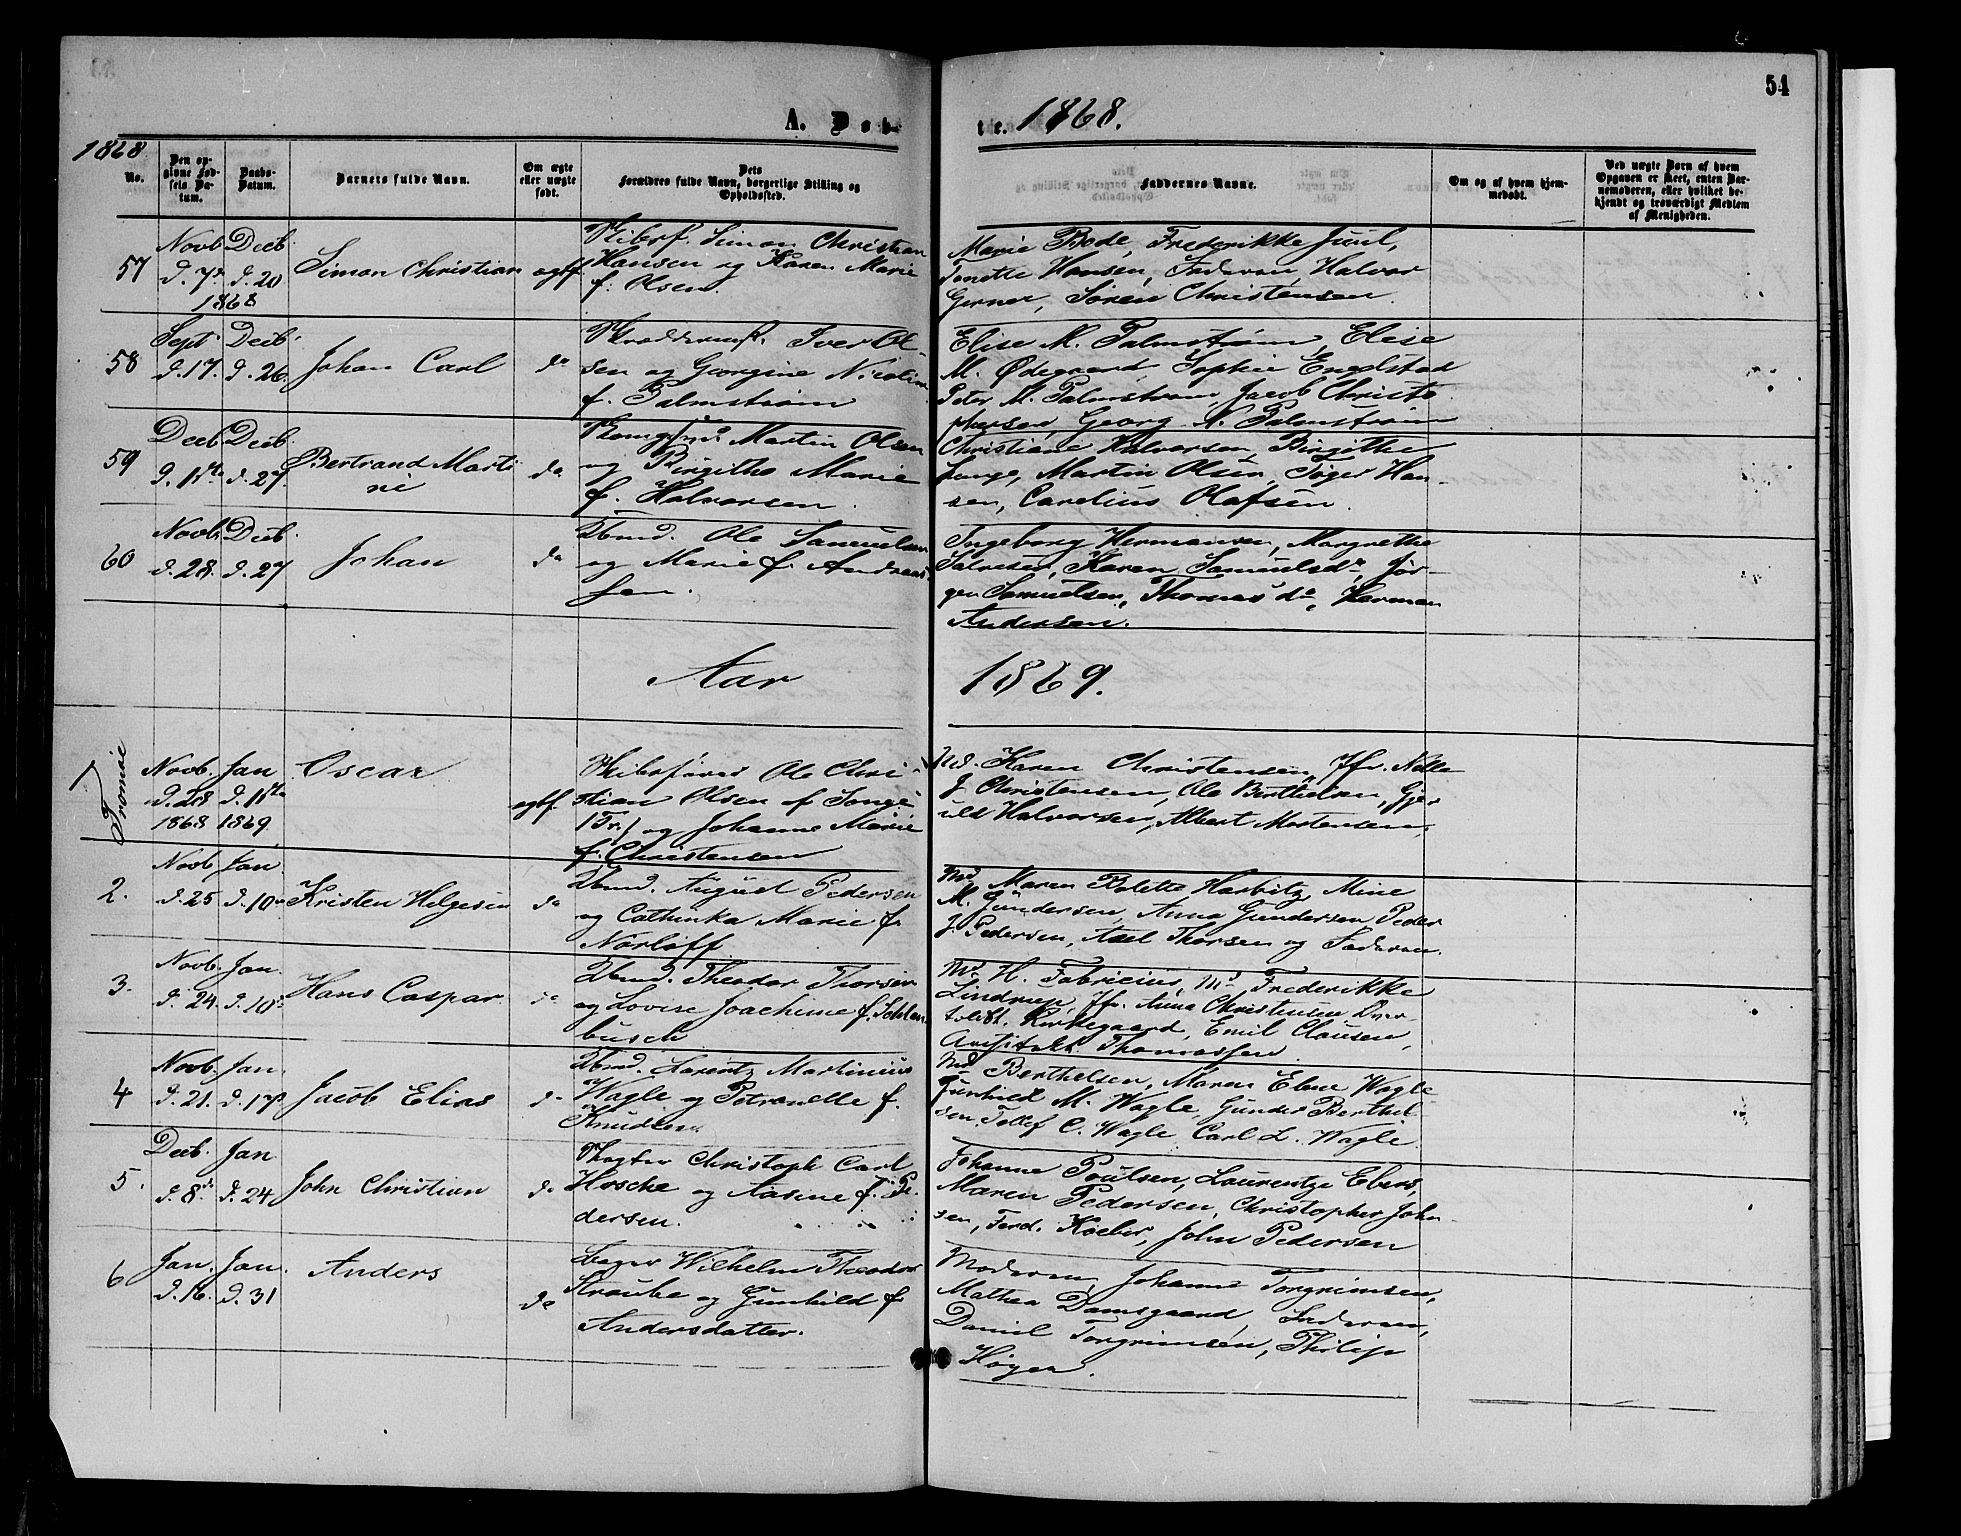 54
A. Døb-
te. 1868.
1868
No.
Den op-
givne Fød-
sels Da-
tum.
Daabs-
Datum.
Barnets fulde Navn.
Om ægte
eller uægte
født.
Dets
Forældres fulde Navn, borgerlige Stilling og
Opholdssted.
Faddernes Navne.
Om og af hvem hjem-
medøbt.
Ved uægte Børn af hvem
Opgaven er skeet, enten Bar-
nemoderen, eller hvilket be-
kjendt og troværdigt Medlem
af Menigheden.
57
Novb.
d. 7de
1868
Decb.
d. 20
Simon Christian
ægtf.
Skibsf. Simon Christian
Hansen og Karen Marie
f. Olsen.
Marie Bode, Frederikke Juul,
Tonette Hansen, Faderen, Halvor
Gerner, Søren Christensen.
58
Sept.
d. 17.
Decb.
d. 26.
Johan Carl
do
Iver Ol-
sen og Georgine Nicoline
f. Palmstrøm
Elise M. Palmstrøm, Elise
M. Ødegaard, Sophie Engelstad
Peter M. Palmstrøm, Jacob Christo
phersen, Georg N. Palmstrøm
59
Decb.
d. 1ste
Decb.
d. 27.
Bertrand Marti
ni
do
Martin Olsen
og Birgithe Marie
f. Halvorsen.
Christiane Halvorsen, Birgithe
Lange, Martin Olsen, Tøger Han-
sen, Carelius Olafsen.
60
Novb.
d. 28.
Decb.
d. 27
Johan
do
Tbmd. Ole Samuelsen
og Marie f. Andreas-
sen.
Ingeborg Hermansen, Margrethe
Salvesen, Karen Samuelsdr, Jør-
gen Samuelsen, Thomas do, Herman
Andersen.
Aar 1869.
1
Tromøe
Novb.
d. 28
1868
Jan
d. 1ste
1869
Oscar
ægtf.
Skibsfører Ole Chri-
stian Olsen af Songe
(Tr.) og Johanne Marie
f. Christensen
Md. Karen Christensen, Jfr. Nille
J. Christensen, Ole Berthelsen, Gjer
uld Halvorsen, Albert Mortensen.
2.
Novb.
d. 25
Jan.
d. 10de
Kristen Helgesen
do
Tbmd. August Pedersen
og Cathinka Marie f.
Norløff
Md. Maren Bolette Harbitz, Mine
M. Gundersen, Anna Gundersen Peder
J. Pedersen, Axel Thorsen og Faderen.
3.
Novb.
d. 24.
Jan.
d. 10de
Hans Caspar
do
Tbmd. Theodor Thorsen
og Lovise Joachime f. Schlan-
busch
Md. H. Fabricius, Md. Frederikke
Lindrup, Jfr. Anna Christensen,
Kirkegaard, Emil Clausen,
Thomassen.
4
Novb.
d. 21.
Jan.
d. 17de
Jacob Elias
do
Tbmd. Lorentz Martinius
Wagle og Petronelle f.
Knudsen
Md Berthelsen, Maren Elene Wagle
Gunhild M. Wagle, Gunder Berthel
sen, Tellef C. Wagle, Carl L. Wagle.
5.
Decb.
d. 8de
Jan
d. 24
John Christian
do
Slagter Christoph Carl
Hoscke og Aasine f. Pe-
dersen.
Johanne Poulsen, Laurentze Ebers,
Maren Pedersen, Christopher John
sen, Ferd. Koeber, John Pedersen
6
Jan.
d. 16.
Jan.
d. 31
Anders
do
Bager Wilhelm Theodor
Straube og Gunhild f.
Andersdatter.
Moderen, Johanne Torgrimsen,
Mathea Damsgaard, Faderen,
Daniel Torgrimsen, Philip
Høyer.